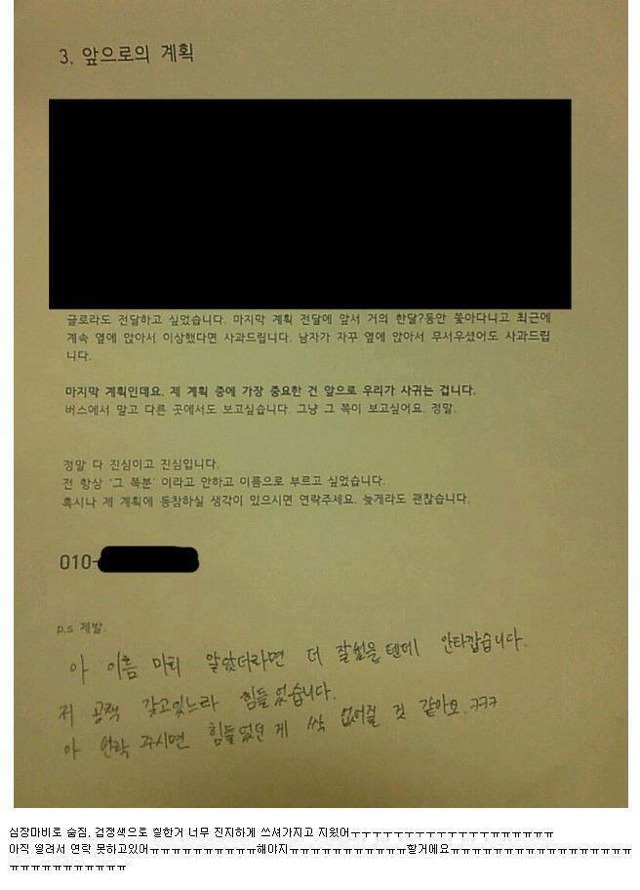 3. 앞으로의 계획
글로라도 전달하고 싶었습니다. 마지막 계획 전달에 앞서 거의 한달?동안 쫓아다니고 최근에
계속 옆에 앉아서 이상했다면 사과드립니다. 남자가 자꾸 옆에 앉아서 무서우셨어도 사과드립
니다.
마지막 계획인데요. 제 계획 중에 가장 중요한 건 앞으로 우리가 사귀는 겁니다.
버스에서 말고 다른 곳에서도 보고싶습니다. 그냥 그 쪽이 보고싶어요. 정말.
정말 다 진심이고 진심입니다.
전 항상 '그 쪽분' 이라고 안하고 이름으로 부르고 싶었습니다.
혹시나 제 계획에 동참하실 생각이 있으시면 연락주세요. 늦게라도 괜찮습니다.
010-
p.s 제발.
아 이름 미리 알았더라면 더 잘썼을텐데 안타깝습니다.
저 공책 갖고있느라 힘들었습니다.
아 연락 주시면 힘들었던 게 싹 없어질 것 같아요. ㅋㅋㅋ
심장마비로 숨짐. 검정색으로 칠한거 너무 진지하게 쓰셔가지고 지웠어ㅜㅜㅜㅜㅜㅜㅜㅜㅜㅜㅜㅜㅠㅠㅠㅠㅠㅠ
아직 떨려서 연락 못하고있어ㅠㅠㅠㅠㅠㅠㅠㅠㅠㅠ해야지ㅠㅠㅠㅠㅠㅠㅠㅠㅠㅠㅠ할거에요ㅠㅠㅠㅠㅠㅠㅠㅠㅠㅠㅠㅠㅠㅠㅠㅠㅠ
ㅠㅠㅠㅠㅠㅠㅠㅠㅠㅠㅠ